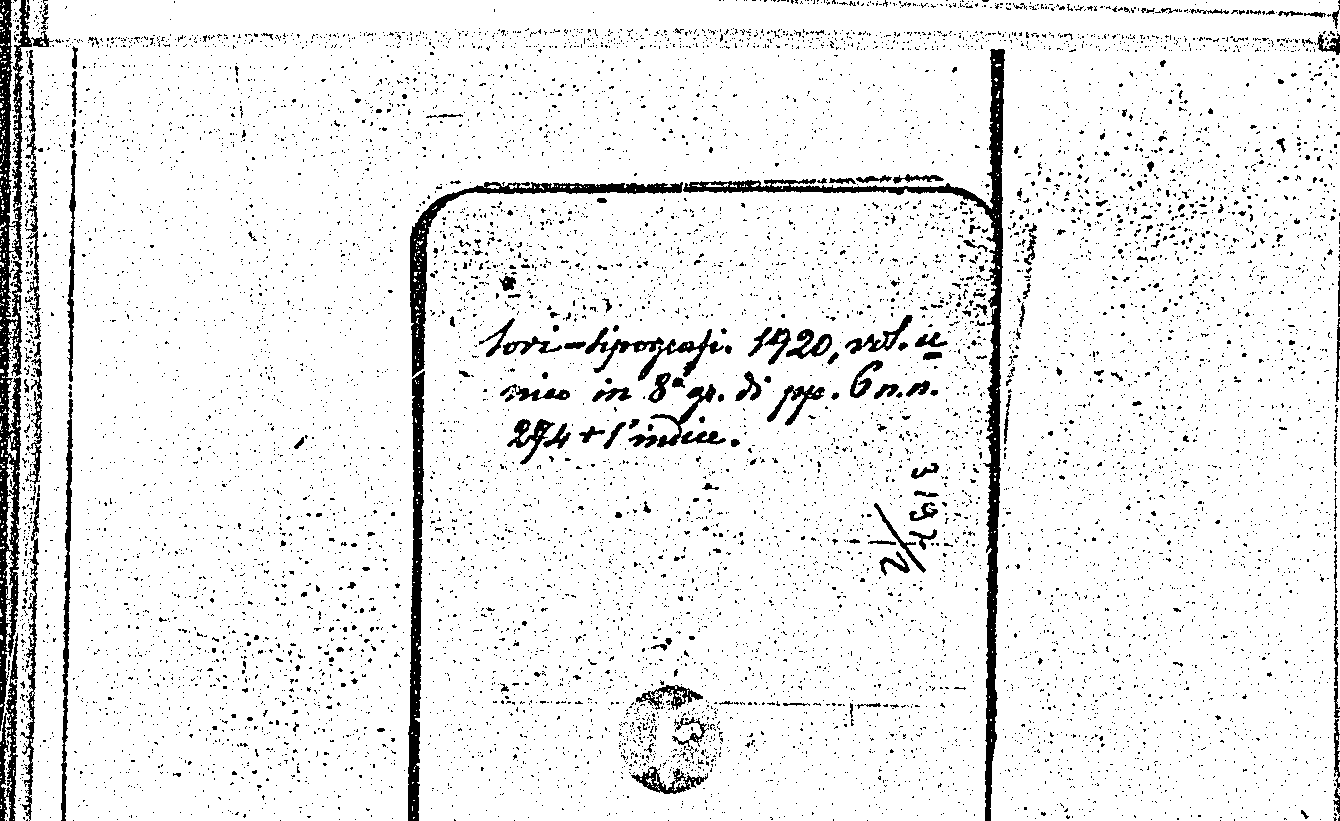 tori-tipografi. 1920, vol. u
nico in 8° gr. di pp. 6 n.n.
274 + l'indice.
3197
12